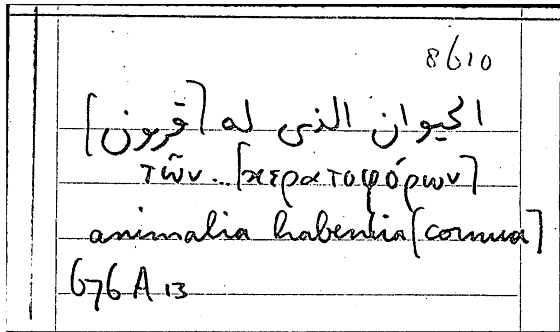 8610
الحيوان الذى له [قرون]
τῶν.. [κερατοφόρων]
animalia habentia [cornua]
676 A 13